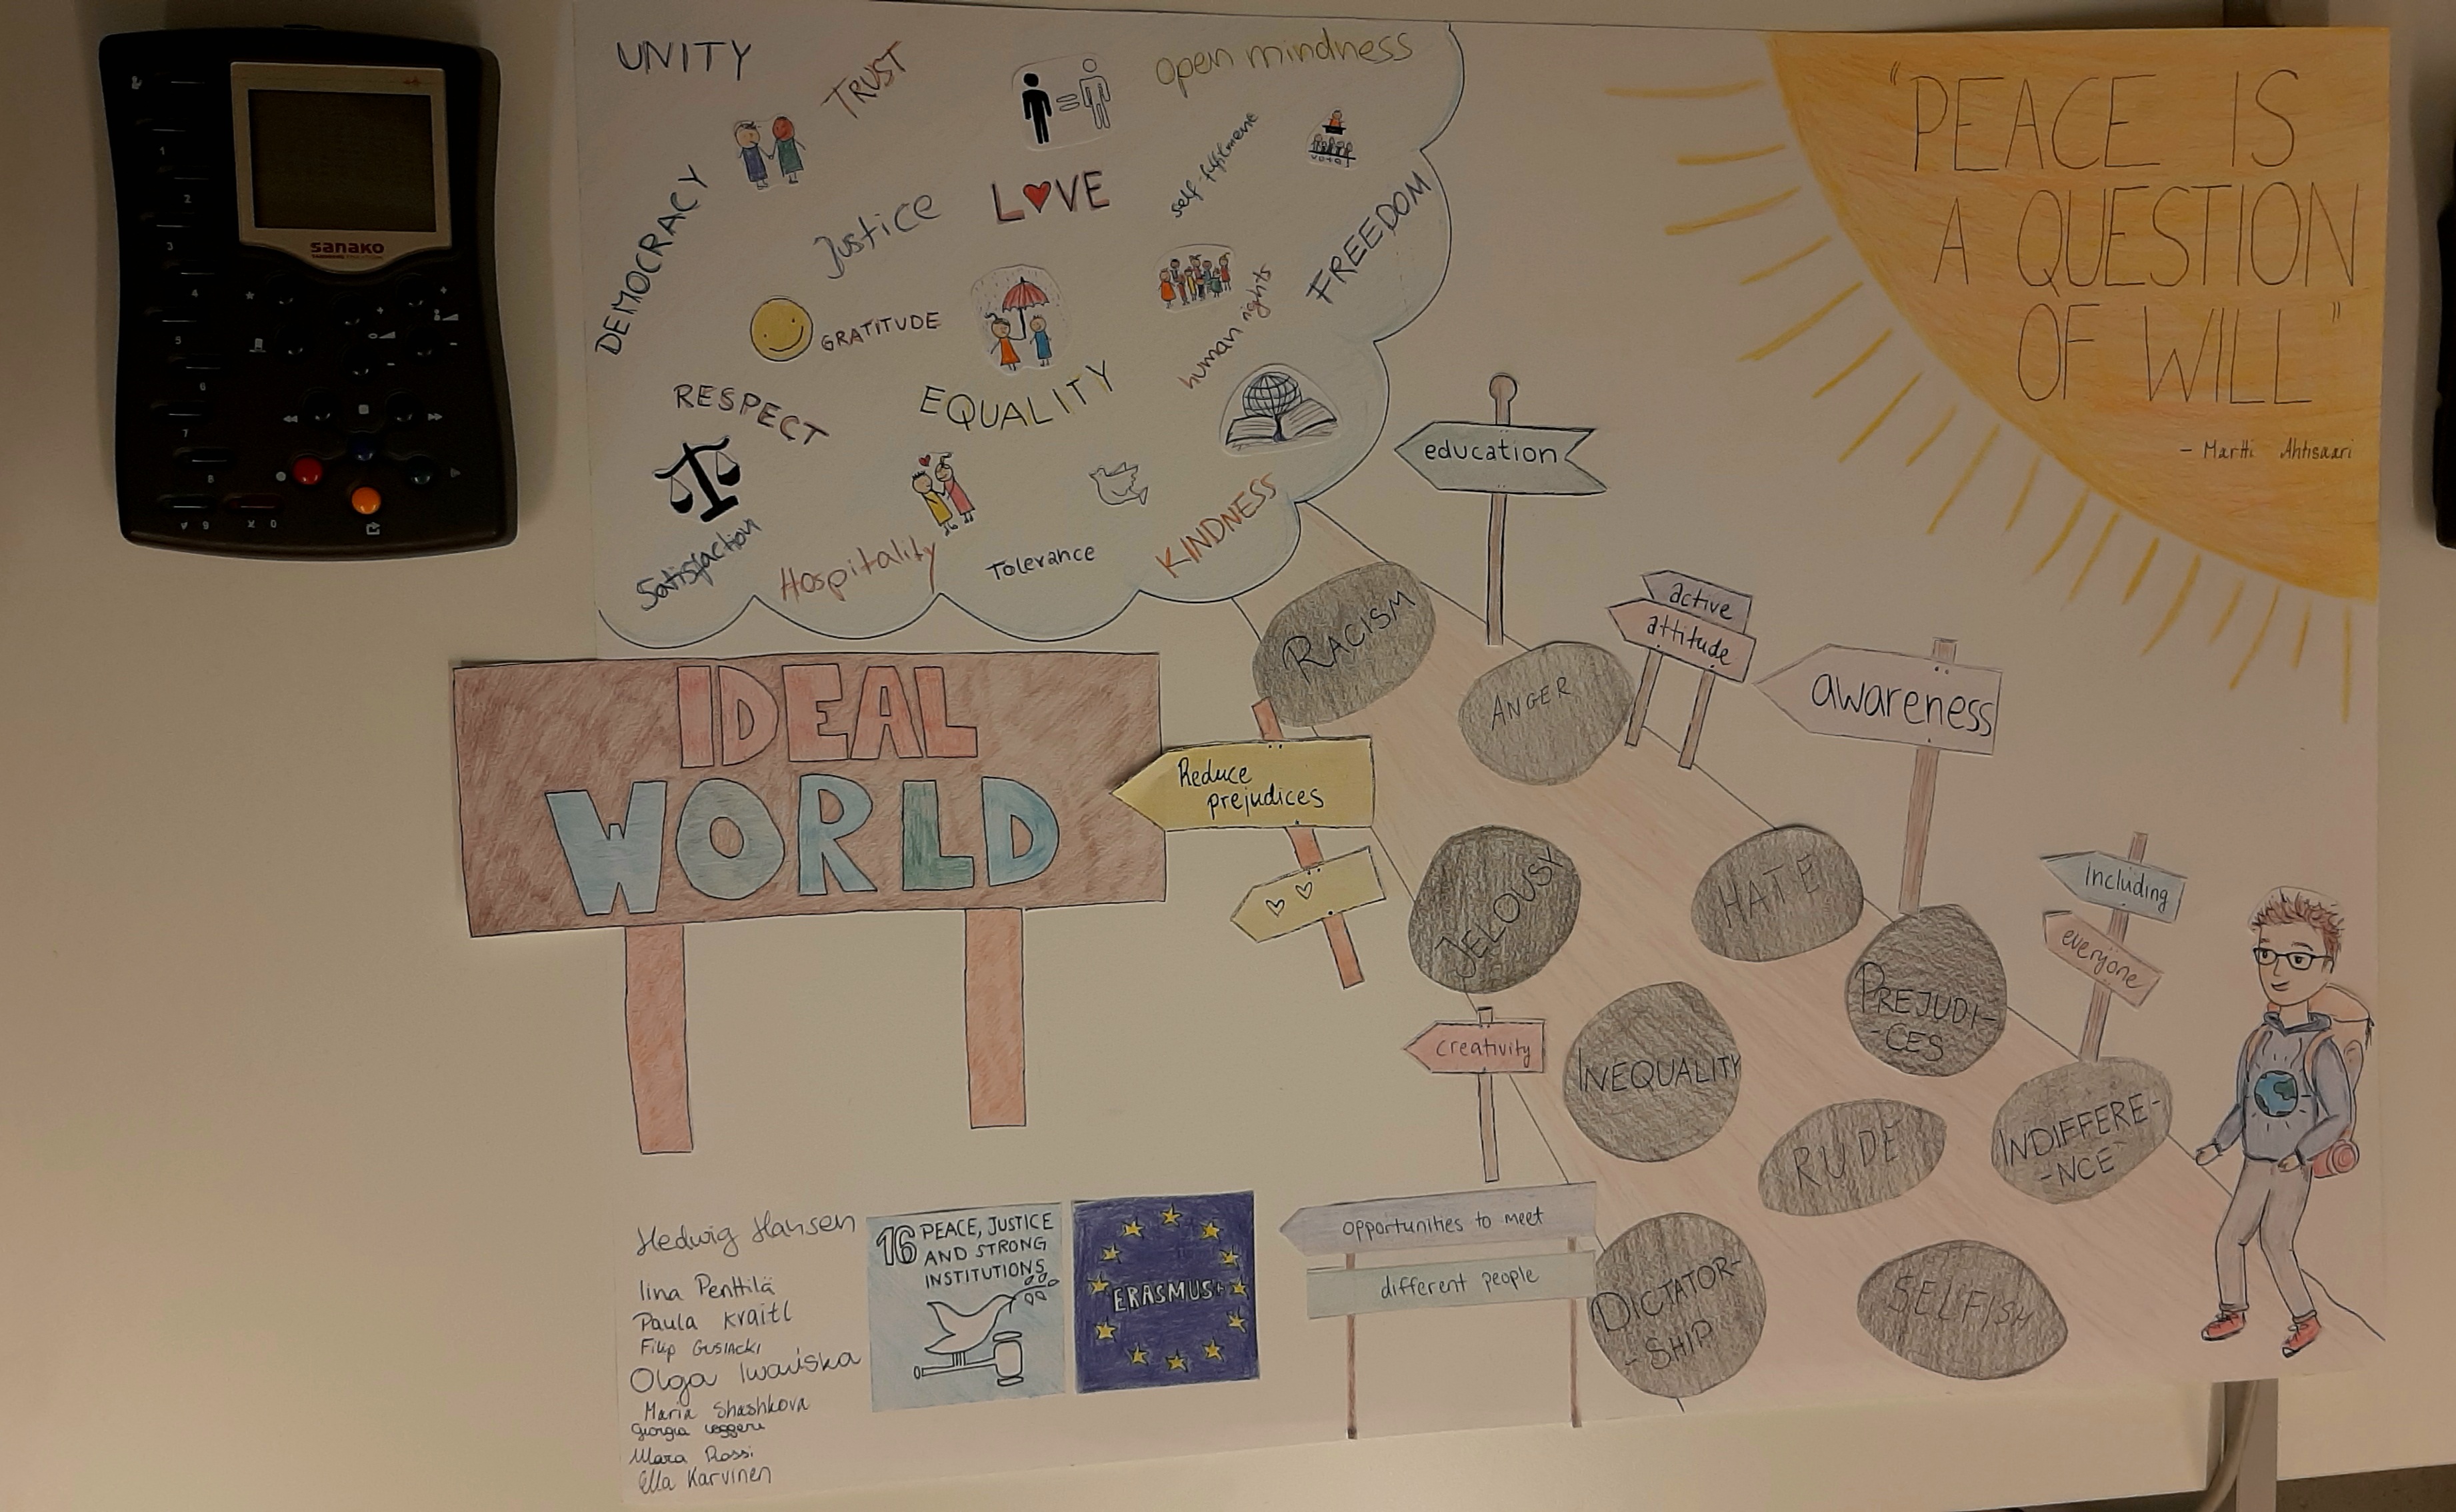 UNITY
TRUST
open mindness
DEMOCRACY
Justice
LOVE
self-fulfilment
vote
FREEDOM
GRATITUDE
human rights
RESPECT
EQUALITY
Satisfaction
Hospitality
Tolerance
KINDNESS
"PEACE IS
A QUESTION
OF WILL"
- Martti Ahtisaari
education
active
attitude
awareness
Including
everyone
RACISM
ANGER
IDEAL
WORLD
Reduce
prejudices
JELOUSY
HATE
PREJUDI-
-CES
creativity
INEQUALITY
RUDE
INDIFFERE-
-NCE
opportunities to meet
different people
DICTATOR-
-SHIP
SELFISH
Hedwig Hansen
Iina Penttilä
Paula Kraitl
Filip
Olga Iwańska
Maria Shashkova
Giorgia
Mara Rossi
Ella Karvinen
16 PEACE, JUSTICE
AND STRONG
INSTITUTIONS
ERASMUS+
sanako
1
2
3
4
5
6
7
8
9
0